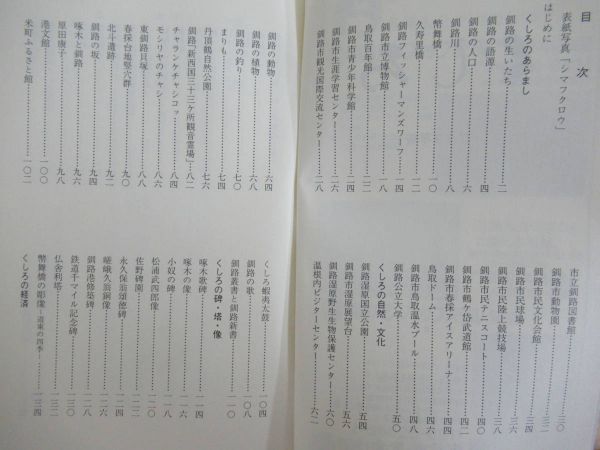 目次
表紙写真「シマフクロウ」
はじめに
くしろのあらまし
釧路の生いたち……二
釧路の語源……四
釧路の人口……六
釧路川……八
幣舞橋……一〇
久寿里橋……一二
釧路フィッシャーマンズワーフ……一四
釧路市立博物館……一八
鳥取百年館……二二
釧路市青少年科学館……二四
釧路市生涯学習センター……二六
釧路市観光国際交流センター……二八
市立釧路図書館……三〇
釧路市動物園……三二
釧路市民文化会館……三四
釧路市民球場……三六
釧路市民陸上競技場……三八
釧路市民テニスコート……四〇
釧路市鶴ケ岱武道館……四二
釧路市春採アイスアリーナ……四四
鳥取ドーム……四六
釧路市鳥取温水プール……四八
釧路公立大学……五〇
くしろの自然・文化
釧路湿原国立公園……五四
釧路市湿原展望台……五六
釧路湿原野生生物保護センター……六〇
温根内ビジターセンター……六二
釧路の動物……六四
釧路の植物……六八
釧路の釣り……七〇
まりも……七四
丹頂鶴自然公園……七六
釧路「新西国三十三ケ所観音霊場」……八二
チャランケチャシコッ……八四
モシリヤのチャシ……八六
東釧路貝塚……八八
春採台地竪穴群……九〇
北斗遺跡……九二
釧路の坂……九四
啄木と釧路……九六
原田康子……九八
港文館……一〇〇
米町ふるさと館……一〇二
くしろ蝦夷太鼓……一〇四
釧路の歌……一〇八
釧路叢書と釧路新書……一一〇
くしろの碑・塔・像
啄木歌碑……一一四
啄木の像……一一六
小奴の碑……一一八
松浦武四郎像……一二〇
佐野碑園……一二二
永久保秀二郎翁頌徳碑……一二四
嵯峨久翁銅像……一二六
釧路港修築碑……一二八
鉄道千マイル記念碑……一三〇
仏舎利塔……一三二
幣舞橋の彫像―道東の四季―……一三四
くしろの経済